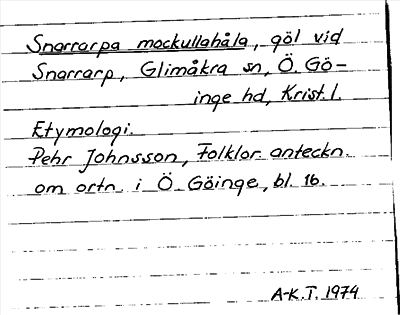 Snarrarpa mockullahåla, göl vid
Snarrarp, Glimåkra sn, Ö. Gö-
inge hd, Krist. l.
Etymologi.
Pehr Johnsson, Folklor. anteckn.
om ortn. i Ö. Göinge, bl. 16.
A-K.T. 1974